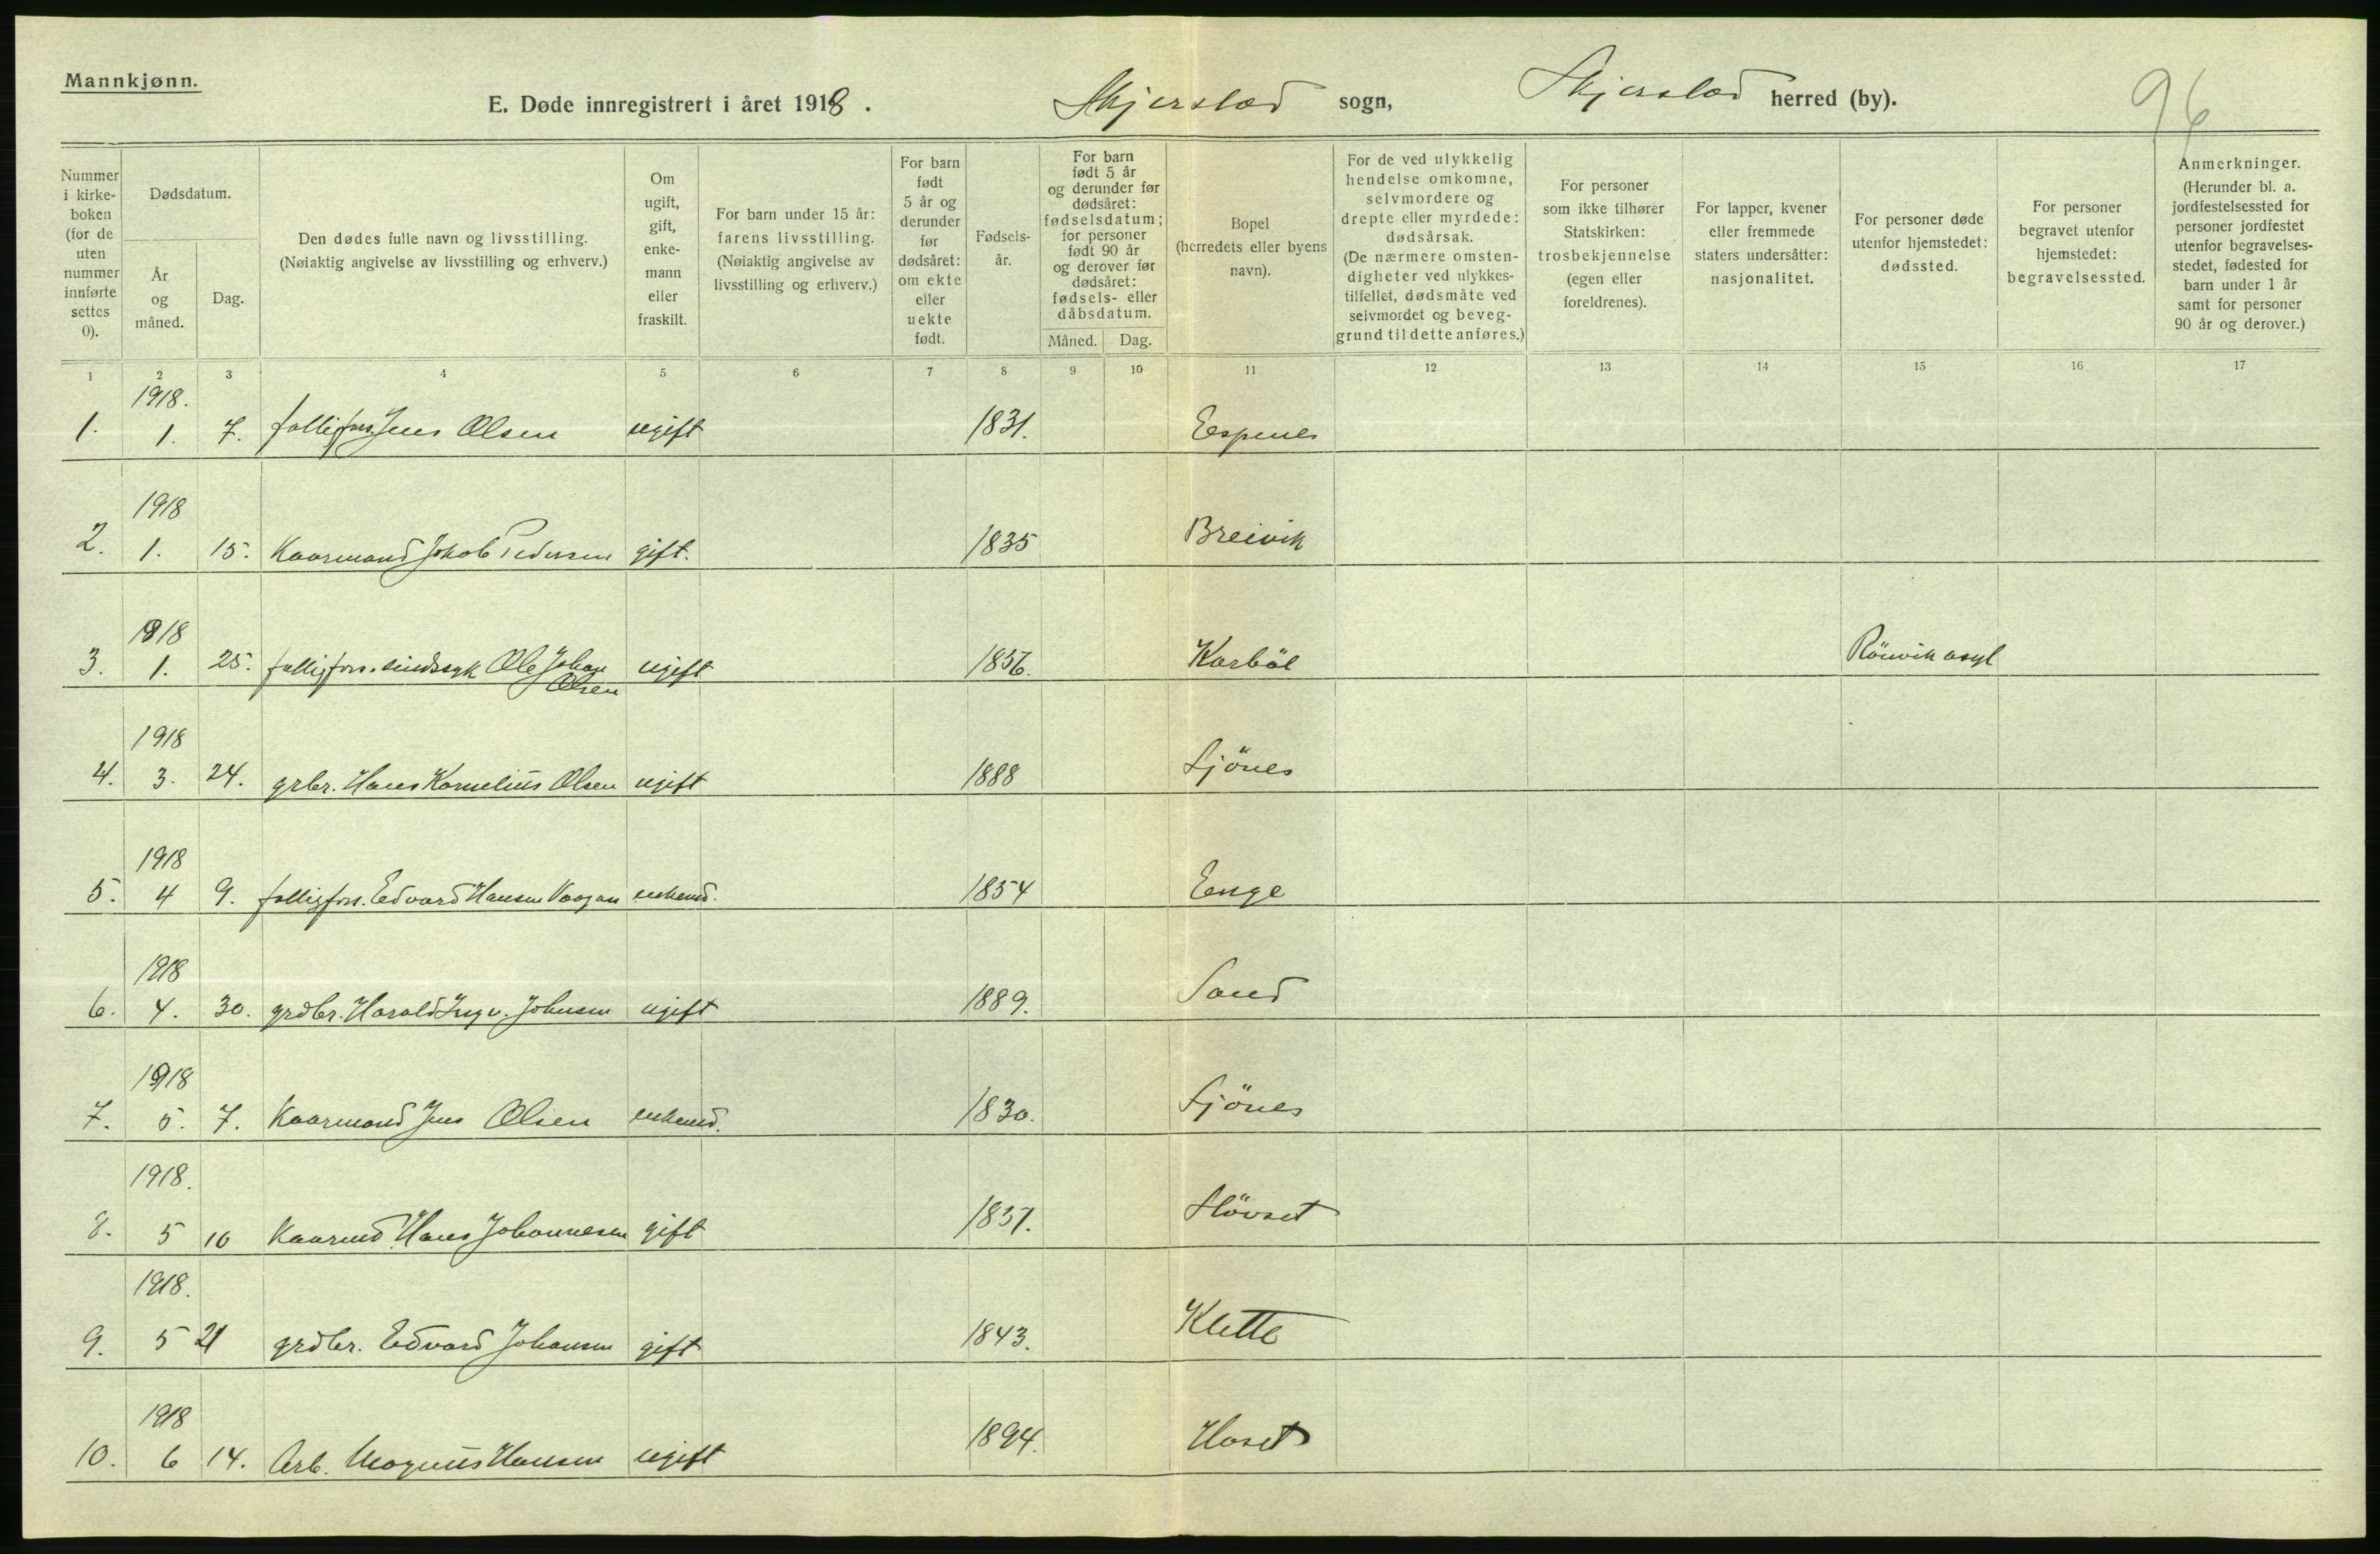 Mannkjønn.
E. Døde innregistrert i året 1918. Skjerstad sogn, Skjerstad herred (by). 96
Nummer i kirke-boken (for de uten nummer innførte settes 0).
Dødsdatum.
År og måned.
Dag.
Den dødes fulle navn og livsstilling. (Nøiaktig angivelse av livsstilling og erhverv.)
Om ugift, gift, enke-mann eller fraskilt.
For barn under 15 år: farens livsstilling. (Nøiaktig angivelse av livsstilling og erhverv.)
For barn født 5 år og derunder før dødsåret: om ekte eller uekte født.
Fødsels-år.
For barn født 5 år og derunder før dødsåret: fødselsdatum; for personer født 90 år og derover før dødsåret: fødsels- eller dåbsdatum.
Måned. Dag.
Bopel (herredets eller byens navn).
For de ved ulykkelig hendelse omkomne, selvmordere og drepte eller myrdede: dødsårsak. (De nærmere omsten-digheter ved ulykkes-tilfellet, dødsmåte ved selvmordet og beveg-grund til dette anføres.)
For personer som ikke tilhører Statskirken: trosbekjennelse (egen eller foreldrenes).
For lapper, kvener eller fremmede staters undersåtter: nasjonalitet.
For personer døde utenfor hjemstedet: dødssted.
For personer begravet utenfor hjemstedet: begravelsessted.
Anmerkninger. (Herunder bl. a. jordfestelsessted for personer jordfestet utenfor begravelses-stedet, fødested for barn under 1 år samt for personer 90 år og derover.)
1 2 3 4 5 6 7 8 9 10 11 12 13 14 15 16 17
1918.
1. 1. 7. fattigfors. Jens Olsen ugift 1831. Espenes
1918
2. 1. 15. Kaarmand Jakob Pedersen gift. 1835 Breivik
1918
3. 1. 25. fattigfors. sindssyk Ole Johan Olsen ugift 1856. Karbøl Rönvik asyl
1918
4. 3. 24. grbr. Hans Kornelius Olsen ugift 1888 Ljönes
1918
5. 4 9. fattigfors. Edvard Hansen Vaagan enkemd. 1854 Enge
1918
6. 4. 30. grdbr. Harald Ingv. Johnsen ugift 1889. Sand
1918
7. 5. 7. Kaarmand Jens Olsen enkemd. 1830. Ljönes
1918.
8. 5 10 Kaarmd Hans Johannesen gift 1837. Hövset
1918.
9. 5 21 grdbr. Edvard Johansen gift 1843. Klette
1918
10. 6 14. Arb. Magnus Hansen ugift 1894. Hoset